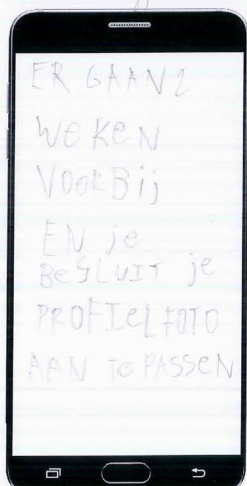 ER GAAN 2
WEKEN
VOORBij
EN je
BESLUIT je
PROFIEL FOTO
AAN TE PASSEN